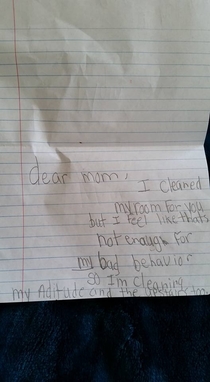 dear mom,
I cleaned
my room for you
but I feel like thats
not enough for
my bad behavior
so Im cleaning
my Aditude and the upstairs too